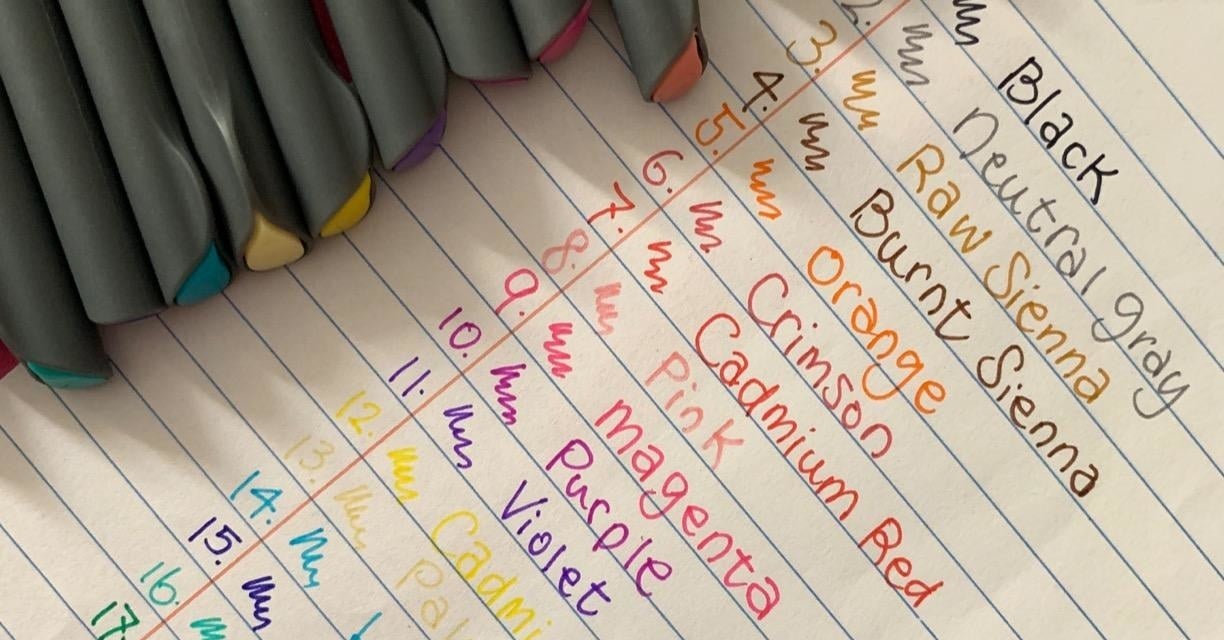 Black
2. Neutral gray
3. Raw Sienna
4. Burnt Sienna
5. Orange
6. Crimson
7. Cadmium Red
8. Pink
9. Magenta
10. Purple
11. Violet
12. Cadmi
13. Pal
14.
15.
16.
17.